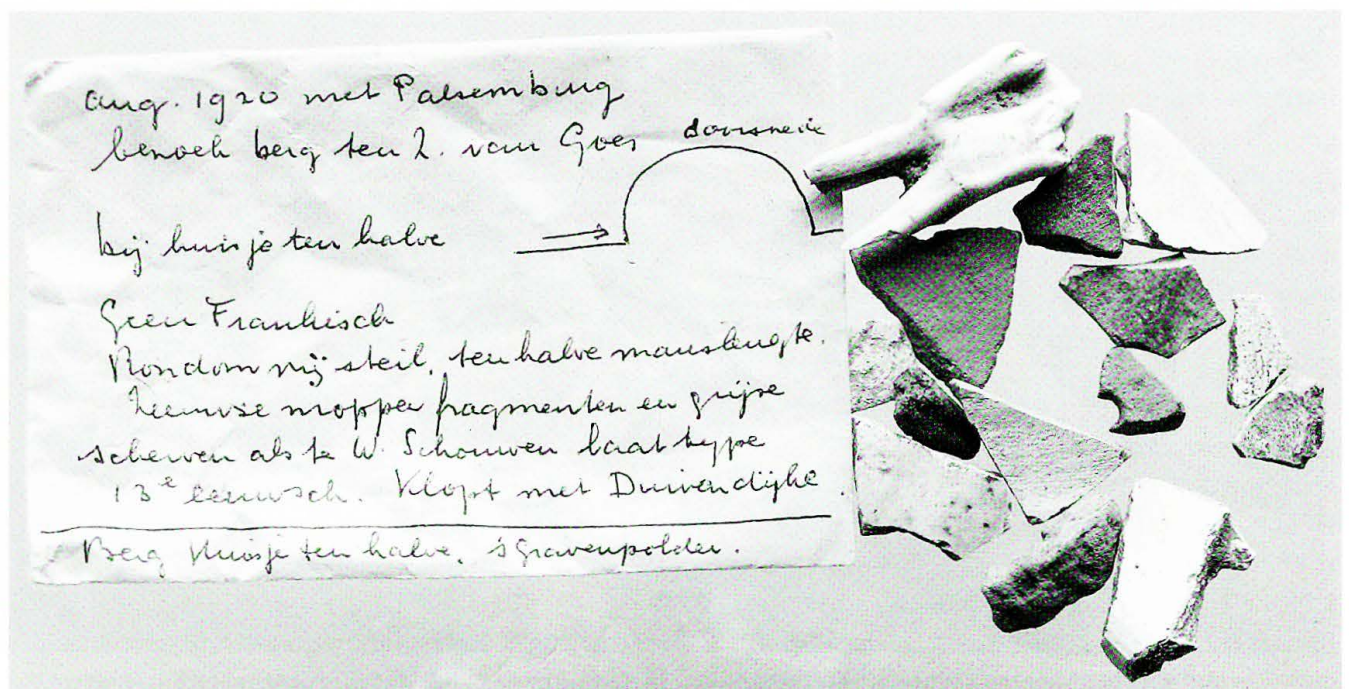 aug. 1920 met Palsemburg
bezoek berg ten Z. van Goes
doorsnede
bij huisje ten halve
Geen Frankisch
Rondom vrij steil, ten halve manslengte.
Zeeuwse moppen fragmenten en grijze
scherven als te W. Schouwen laat type
13e eeuwsch. Klopt met Duivendijke.
Berg Huisje ten halve, 's Gravenpolder.